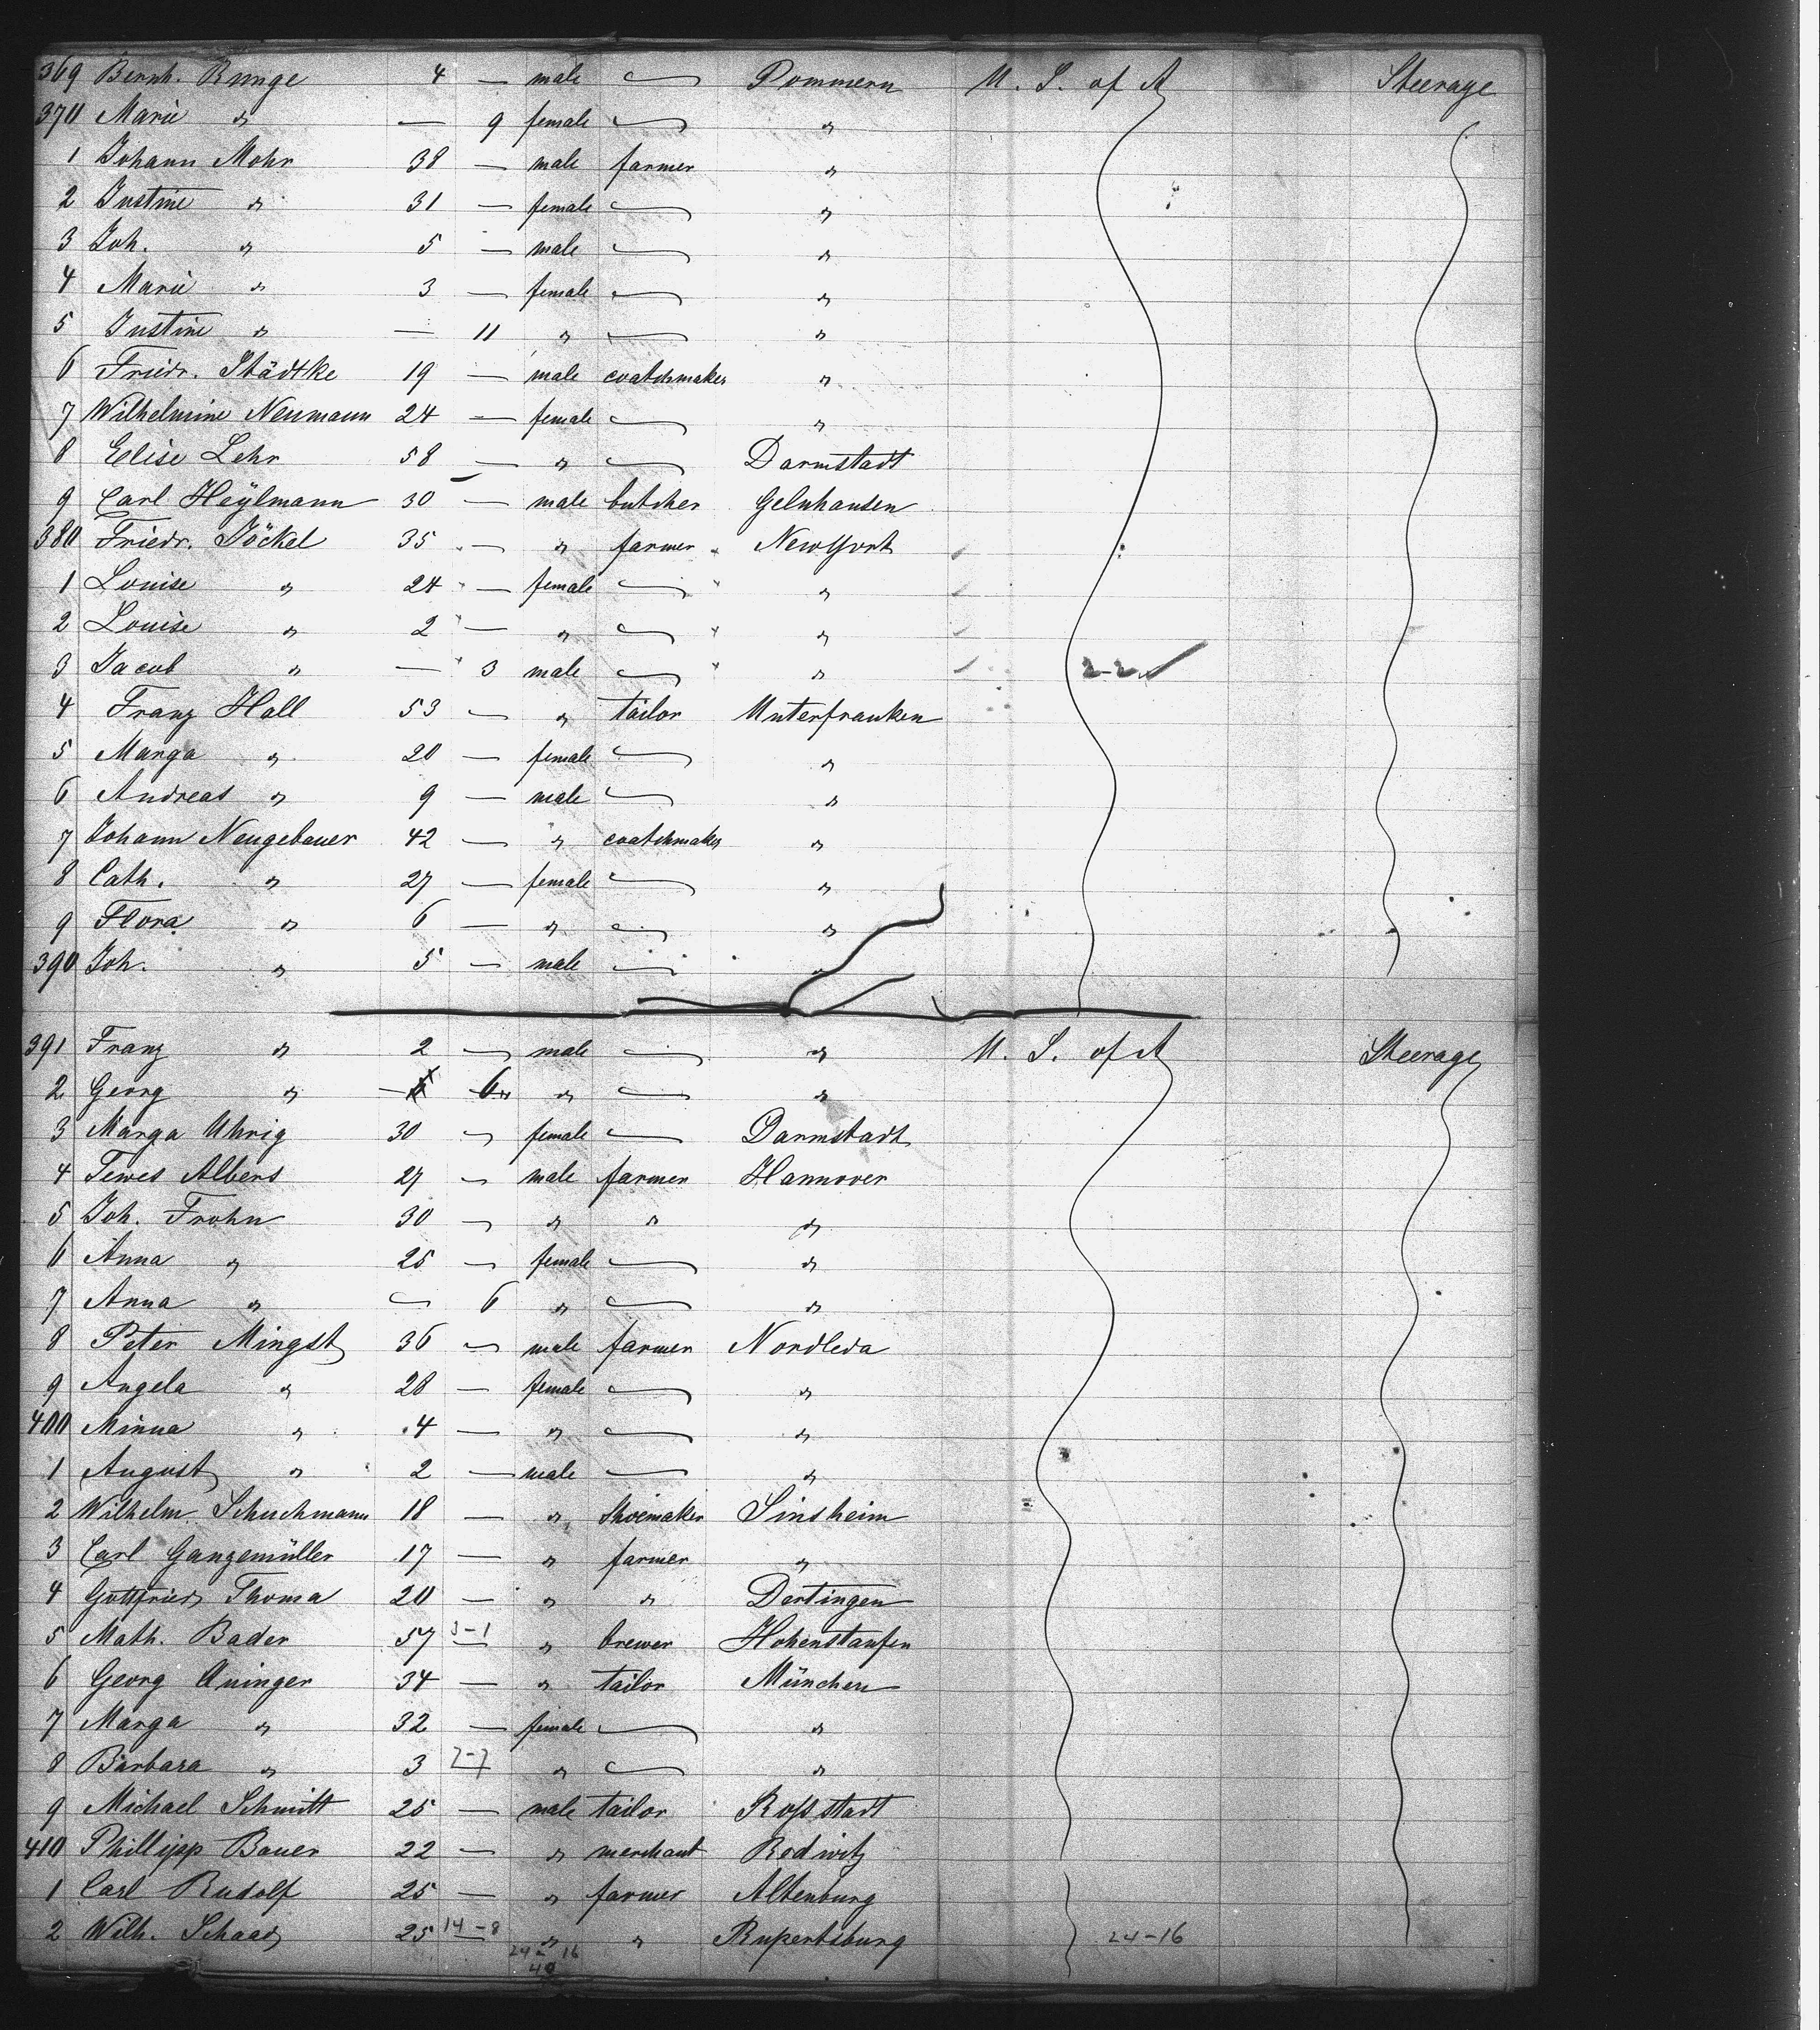 369 Bernh. Runge 4 — male — Pommern U. S. of A Steerage
370 Marie " — 9 female — "
1 Johann Mohr 38 — male farmer "
2 Justine " 31 — female — "
3 Joh. " 5 — male — "
4 Marie " 3 — female — "
5 Justine " — 11 " — "
6 Friedr. Städtke 19 — male coatchmaker "
7 Wilhelmine Neumann 24 — female — "
8 Elise Lehr 58 — " — Darmstadt
9 Carl Heylmann 30 — male butcher Gelnhausen
380 Friedr. Jöckel 35 — " farmer New York
1 Louise " 24 — female — "
2 Louise " 2 — " — "
3 Jacob " — 3 male — " 2-2
4 Franz Hall 53 — " tailor Unterfranken
5 Marga " 20 — female — "
6 Andreas " 9 — male — "
7 Johann Neugebauer 42 — " coatchmaker "
8 Cath. " 27 — female — "
9 Flora " 6 — " — "
390 Joh. " 5 — male — "
391 Franz " 2 — male — " U. S. of A Steerage
2 Georg " — 6 " — "
3 Marga Uhrig 30 — female — Darmstadt
4 Tewes Albers 27 — male farmer Hannover
5 Joh. Frohn 30 — " " "
6 Anna " 25 — female — "
7 Anna " — 6 " — "
8 Peter Mingst 36 — male farmer Nordleda
9 Angela " 28 — female — "
400 Minna " 4 — " — "
1 August " 2 — male — "
2 Wilhelm Schuchmann 18 — " Shoemaker Sinsheim
3 Carl Ganzemüller 17 — " farmer "
4 Gottfried Thoma 20 — " " Dertingen
5 Math. Bader 57 3-1 — " brewer Hohenstaufen
6 Georg Aninger 34 — " tailor München
7 Marga " 32 — female — "
8 Barbara " 3 7-7 — " — "
9 Michael Schmitt 25 — male tailor Roßstadt
410 Phillipp Bauer 22 — " merchant Redwitz
1 Carl Rudolf 25 — " farmer Altenburg
2 Wilh. Schaad 25 14-8 — " " Rupertsburg 24-16
24-16
40